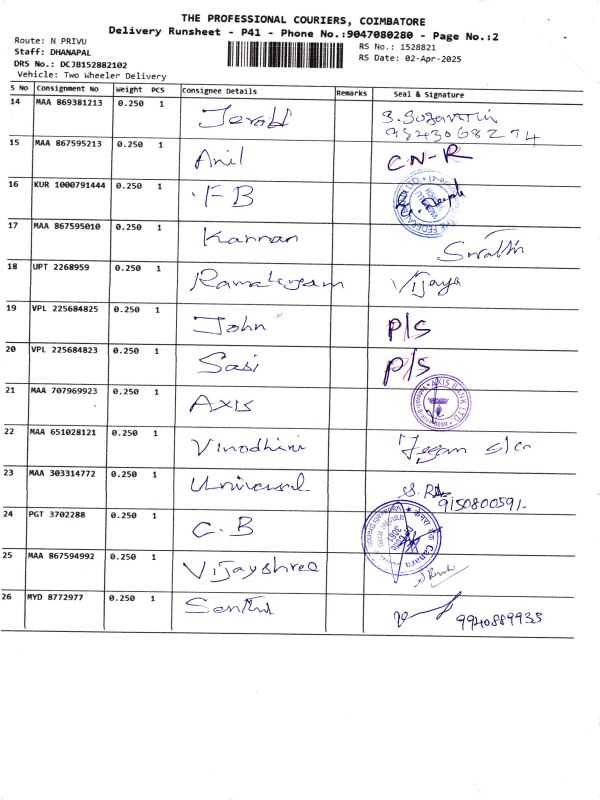 THE PROFESSIONAL COURIERS, COIMBATORE
Delivery Runsheet - P41 - Phone No.:9047080280 - Page No.:2
Route: N PRIVU
Staff: DHANAPAL
DRS No.: DCJB152882102
Vehicle: Two Wheeler Delivery
RS No.: 1528821
RS Date: 02-Apr-2025
S No Consignment No Weight PCS Consignee Details Remarks Seal & Signature
14 MAA 869381213 0.250 1 Jerold
15 MAA 867595213 0.250 1 Anil C N-R
16 KUR 1000791444 0.250 1 FB
17 MAA 867595010 0.250 1 Kannan
18 UPT 2268959 0.250 1 Vijaya
19 VPL 225684825 0.250 1 John P/S
20 VPL 225684823 0.250 1 Sasi P/S
21 MAA 707969923 0.250 1 AXIS AXIS BANK LTD
22 MAA 651028121 0.250 1 Vinodhini
23 MAA 303314772 0.250 1 Universal
9150800591.
24 PGT 3702288 0.250 1 C.B Canara
25 MAA 867594992 0.250 1 Vijayshree
26 MYD 8772977 0.250 1 9940889935